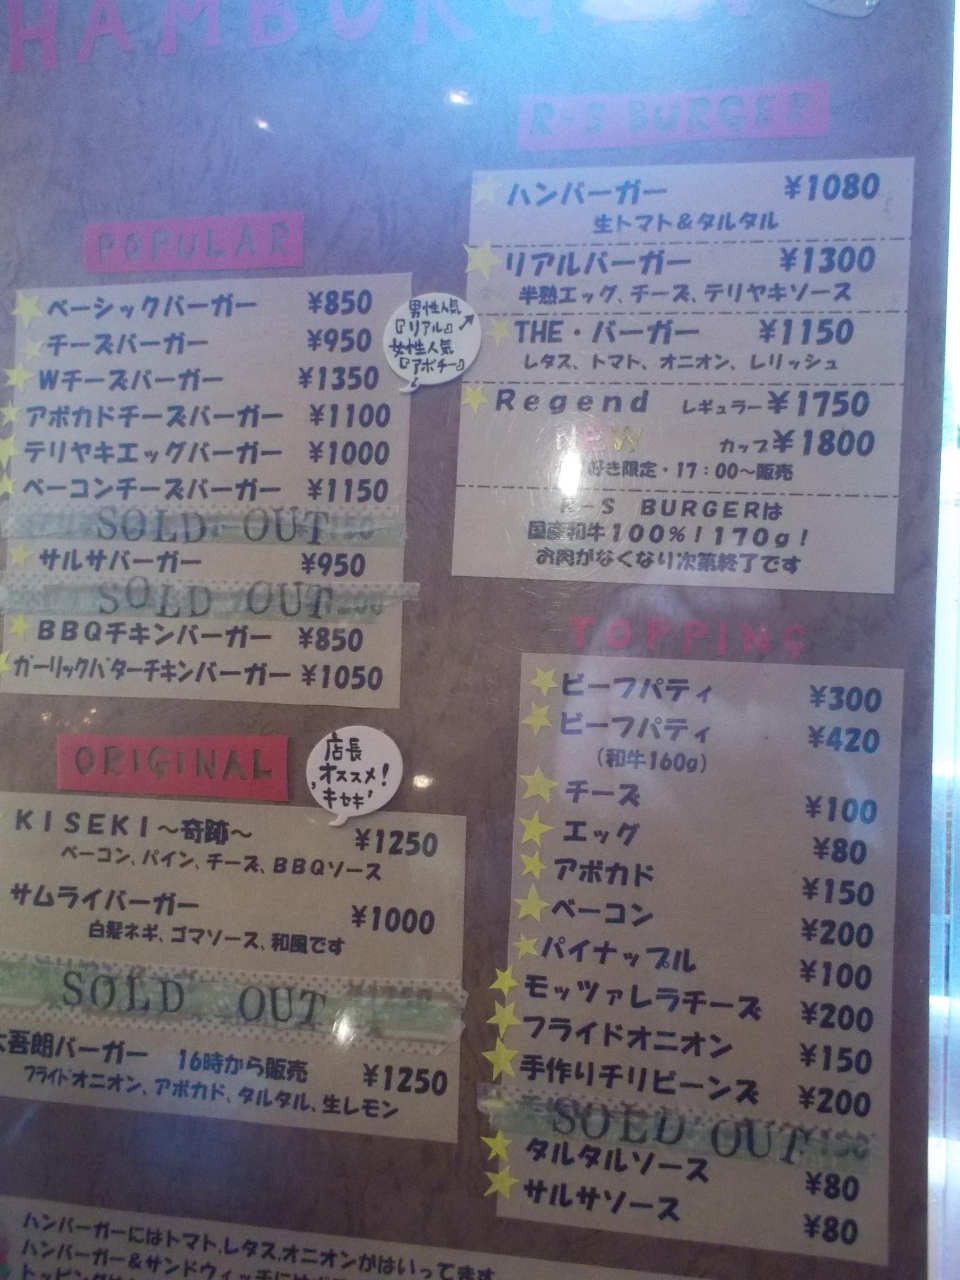 HAMBURGER
POPULAR
ベーシックバーガー ¥850
チーズバーガー ¥950
Wチーズバーガー ¥1350
アボカドチーズバーガー ¥1100
テリヤキエッグバーガー ¥1000
ベーコンチーズバーガー ¥1150
SOLD OUT
サルサバーガー ¥950
SOLD OUT
BBQチキンバーガー ¥850
ガーリックバターチキンバーガー ¥1050
男性人気
『リアル』
女性人気
『アボチー』
ORIGINAL
店長
オススメ!
キセキ
KISEKI〜奇跡〜 ¥1250
ベーコン、パイン、チーズ、BBQソース
サムライバーガー ¥1000
白髪ネギ、ゴマソース、和風です
SOLD OUT
吾朗バーガー 16時から販売 ¥1250
フライドオニオン、アボカド、タルタル、生レモン
R-S BURGER
ハンバーガー ¥1080
生トマト&タルタル
リアルバーガー ¥1300
半熟エッグ、チーズ、テリヤキソース
THE・バーガー ¥1150
レタス、トマト、オニオン、レリッシュ
Regend レギュラー¥1750
NEW カップ¥1800
好き限定・17:00〜販売
R-S BURGERは
国産和牛100%!170g!
お肉がなくなり次第終了です
TOPPING
ビーフパティ ¥300
ビーフパティ ¥420
(和牛160g)
チーズ ¥100
エッグ ¥80
アボカド ¥150
ベーコン ¥200
パイナップル ¥100
モッツァレラチーズ ¥200
フライドオニオン ¥150
手作りチリビーンズ ¥200
SOLD OUT
タルタルソース ¥80
サルサソース ¥80
ハンバーガーにはトマト,レタス,オニオンがはいってます
ハンバーガー&サンドウィッチには